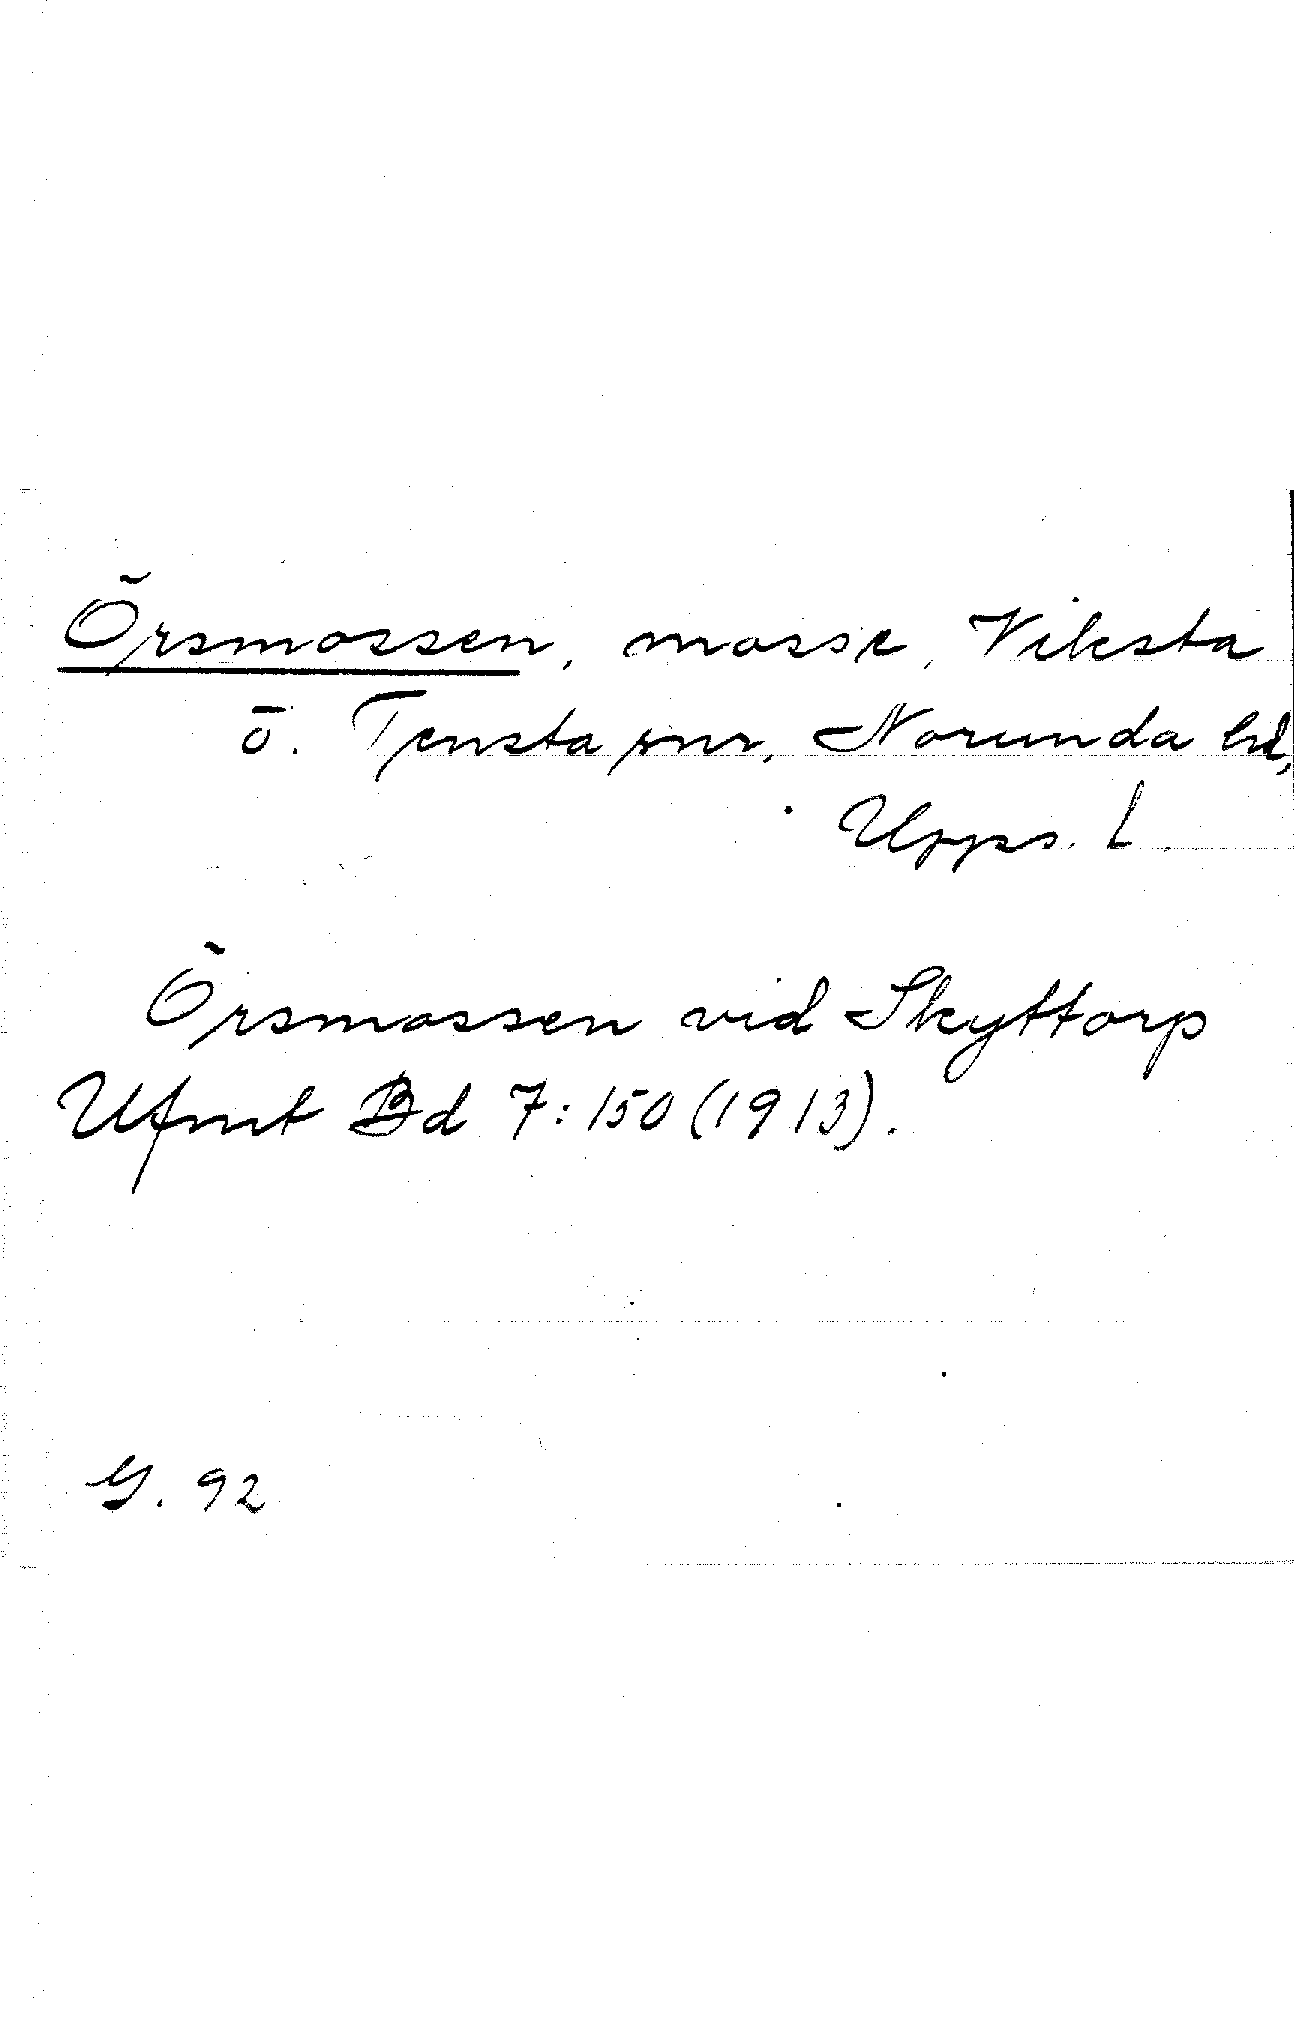 Örsmossen, mosse, Viksta
o. Tensta snr, Norunda hd,
Upps. l.
Örsmossen vid Skyttorp
Ufmt Bd 7:150 (1913).
G. 92